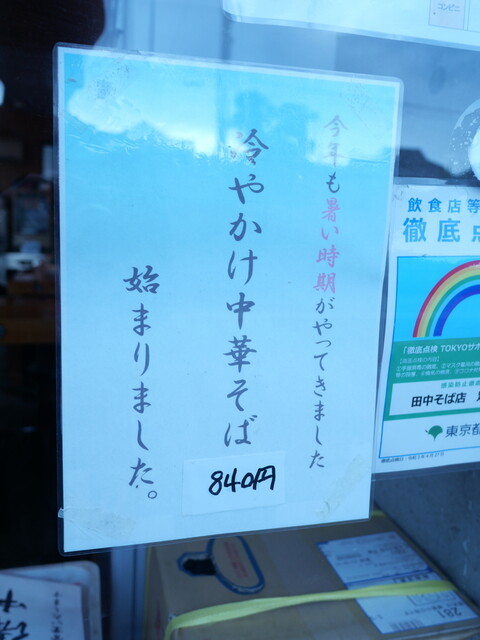 今年も暑い時期がやってきました
冷やかけ中華そば
始まりました。
840円
コンビニ
飲食店等
徹底点
「徹底点検 TOKYOサポ
田中そば店
東京都